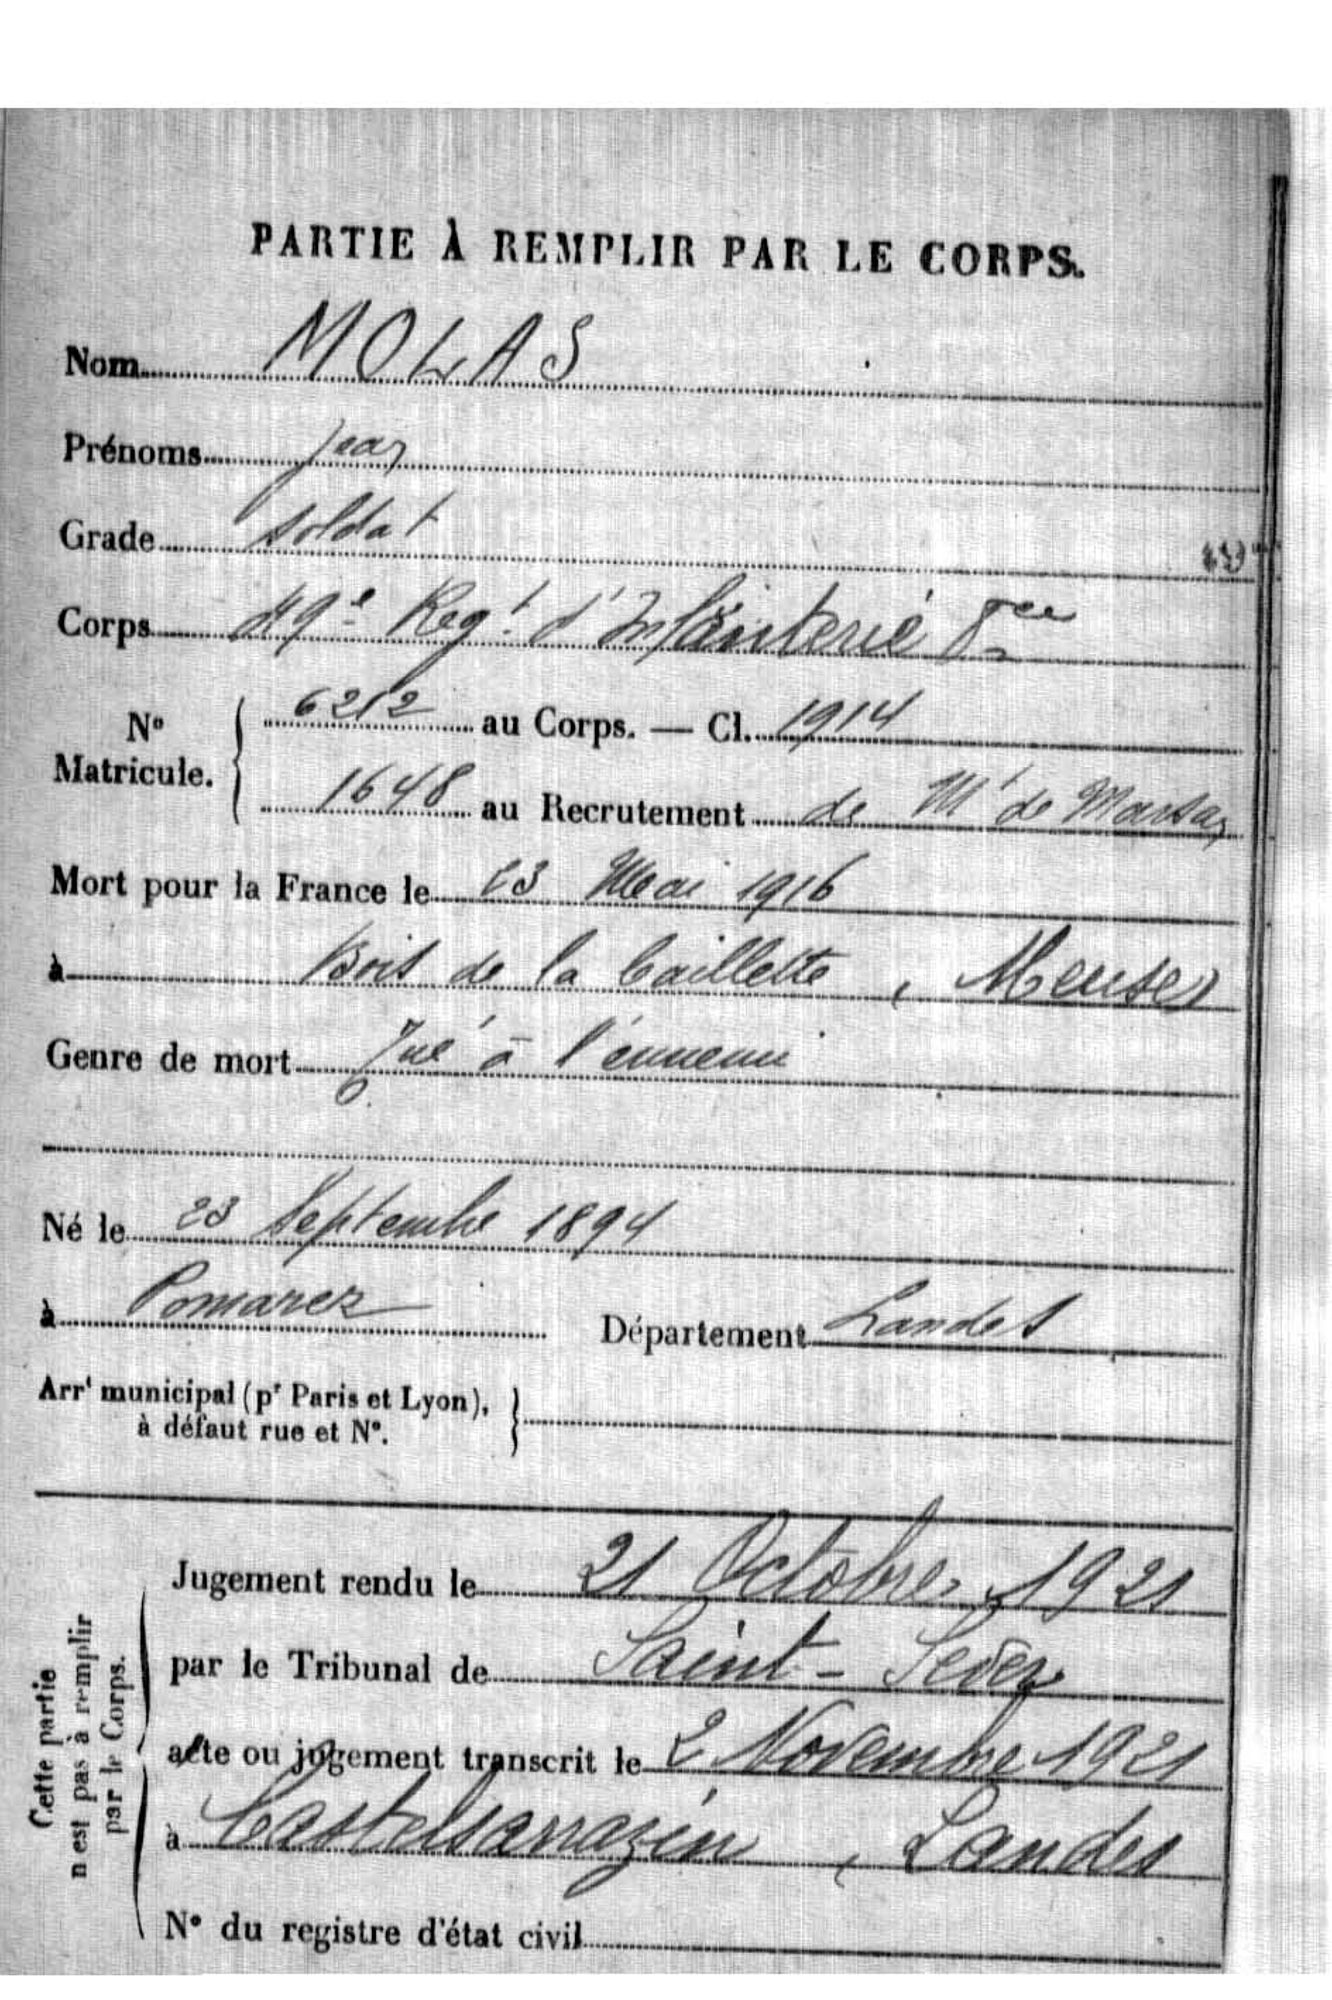 PARTIE À REMPLIR PAR LE CORPS.
Nom MOLAS
Prénoms Jean
Grade Soldat
Corps 49e Regt d'Infanterie 8 Cie
No Matricule. 6212 au Corps. — Cl. 1914
1648 au Recrutement de Mt de Marsan
Mort pour la France le 23 Mai 1916
à Bois de la Caillette, Meuse
Genre de mort Tué à l'ennemi
Né le 23 Septembre 1894
à Pomarez Département Landes
Arrt municipal (pr Paris et Lyon),
à défaut rue et No.
Cette partie
n'est pas à remplir
par le Corps.
Jugement rendu le 21 Octobre 1921
par le Tribunal de Saint-Sever
acte ou jugement transcrit le 2 Novembre 1921
à Castelsarrazin, Landes
No du registre d'état civil